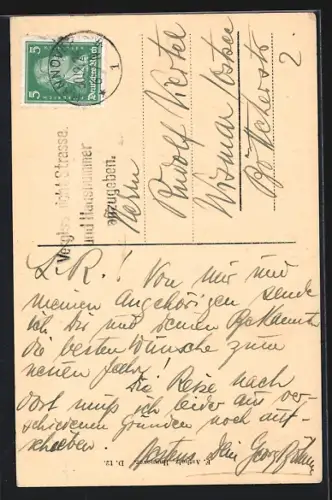 5
5
Deutsches Reich
1
Vergiss nicht Strasse
und Hausnummer
anzugeben.
Herrn
Rudolf
Wismar Ostsee
Böttcherstr
2.
L. R.! Von mir und
meinen Angehörigen sende
ich Dir und Deinen Bekannten
die besten Wünsche zum
neuen Jahr! Die Reise nach
dort muß ich leider aus ver-
schiedenen Gründen noch auf-
schieben. Bestens Dein Georg